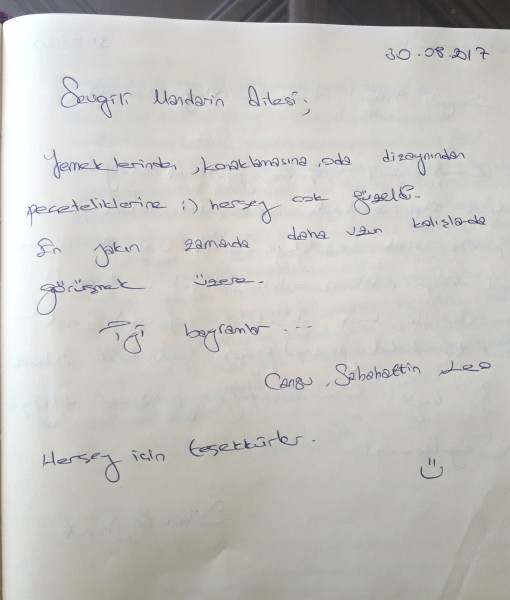 30.08.2017
Sevgili Mandarin Ailesi;
Yemeklerinden, konaklamasına, oda dizaynından
peçeteliklerine :) herşey çok güzeldi.
En yakın zamanda daha uzun kalışlarda
görüşmek üzere.
İyi bayramlar ...
Cansu, Sabahattin, Leo
Herşey için teşekkürler.